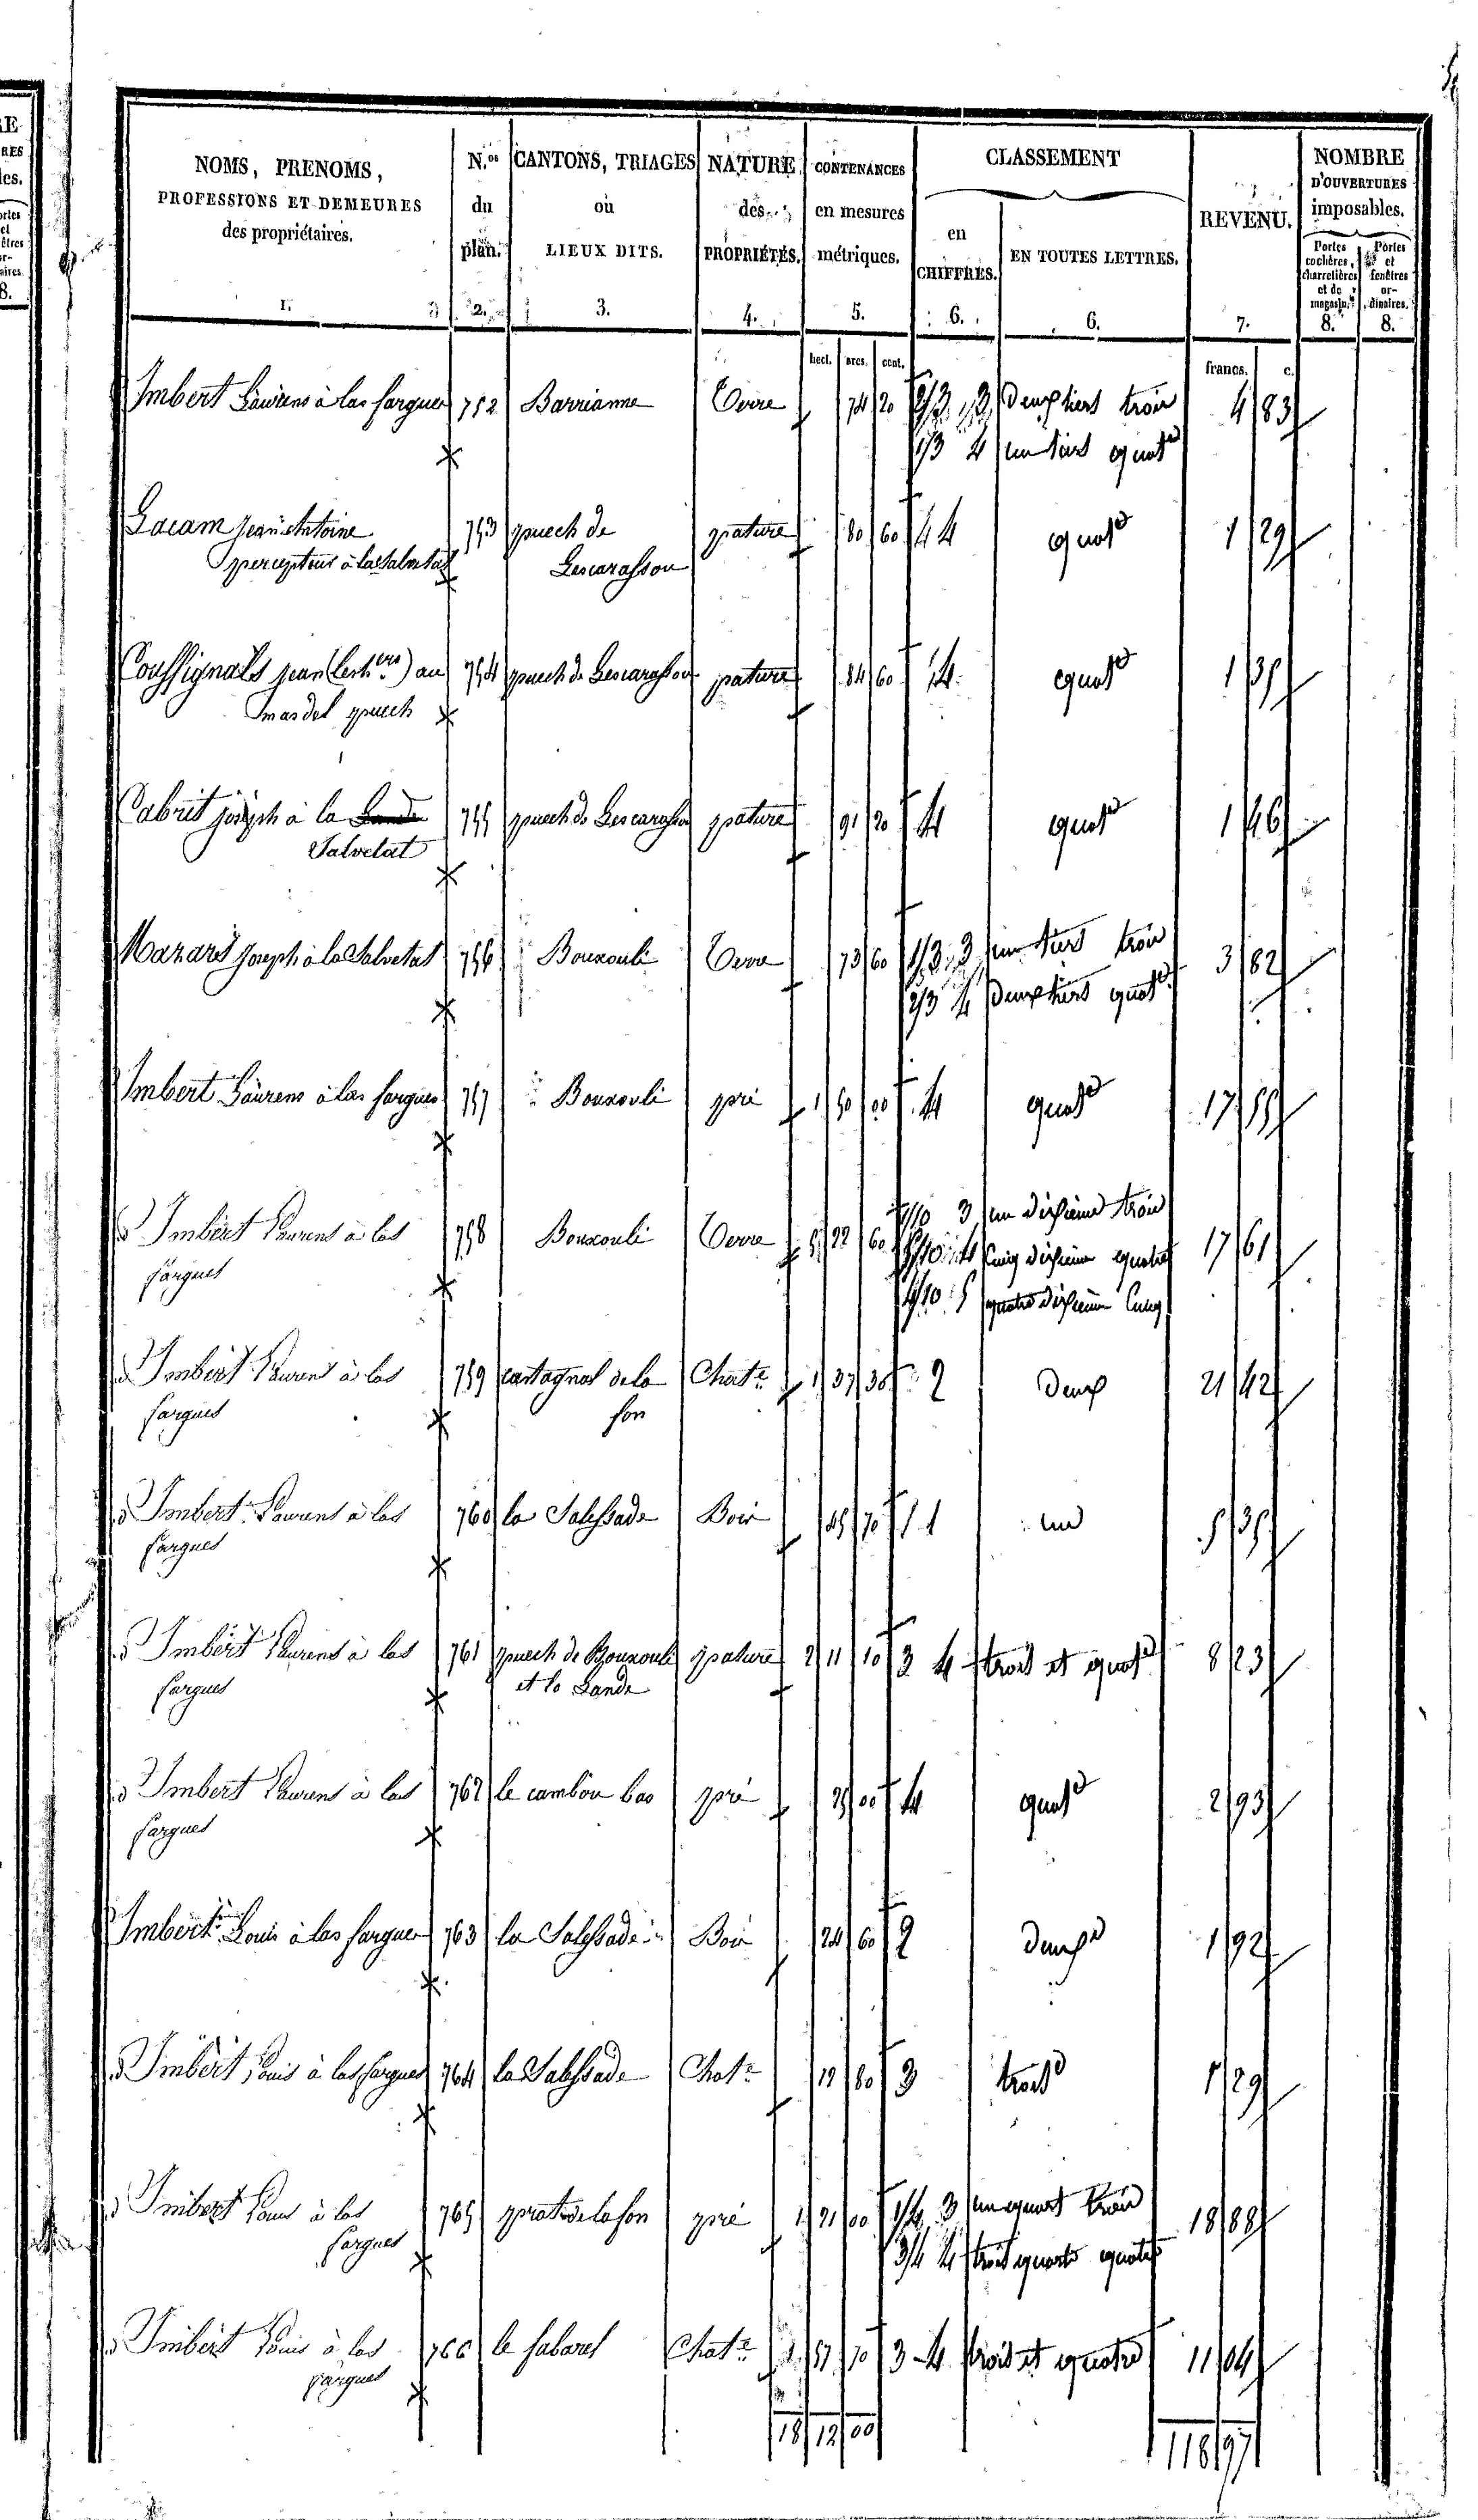 NOMS, PRENOMS,
PROFESSIONS ET DEMEURES
des propriétaires.
1.
N.os
du
plan.
2.
CANTONS, TRIAGES
où
LIEUX DITS.
3.
NATURE
des
PROPRIÉTÉS.
4.
CONTENANCES
en mesures
métriques.
5.
CLASSEMENT
en
CHIFFRES.
6.
EN TOUTES LETTRES.
6.
REVENU.
7.
NOMBRE
D'OUVERTURES
imposables.
Portes
cochères,
charretières
et de
magasin.
8.
Portes
et
fenêtres
or-
dinaires.
8.
hect. ares. cent. francs. c.
Imbert Laurens à las fargues 752 Barrianne Terre 74 20 2/3 3 Deux tiers trois 4 83
1/3 4 un tiers quat
Lacam jean antoine 753 puech de pature 80 60 4 quat 1 29
percepteur à la Salvetat Lescarasson
Coussignals jean (les h.ers) au 754 puech de Lescarasson pature 84 60 4 quat 1 35
mas del puech
Cabrit joseph à la Lande 755 puech de Lescarasson pature 91 20 4 quat 1 46
Salvetat
Mazars joseph à la Salvetat 756 Bouxouli Terre 73 60 1/3 3 un tiers trois 3 82
2/3 4 Deux tiers quat
Imbert Laurens à las fargues 757 Bouxouli pré 1 50 00 4 quat 17 55
Imbert Laurens à las 758 Bouxouli Terre 5 22 60 1/10 3 un dixieme trois 17 61
fargues 5/10 4 Cinq dixieme quatre
4/10 5 quatre dixieme Cinq
Imbert Laurens à las 759 castagnal de la Chat.e 1 37 30 2 Deux 21 42
fargues fon
Imbert Laurens à las 760 la Salessade Bois 45 70 1 un 5 35
fargues
Imbert Laurens à las 761 puech de Bouxouli pature 2 11 10 3 4 trois et quat 8 23
fargues et la Lande
Imbert Laurens à las 762 le cambon bas pré 25 00 4 quat 2 93
fargues
Imbert Louis à las fargues 763 la Salessade Bois 24 60 2 deux 1 92
Imbert Louis à las fargues 764 la Salessade Chat.e 12 80 3 trois 1 29
Imbert Louis à las 765 prat de la fon pré 1 21 00 1/4 3 un quart trois 18 88
fargues 3/4 4 trois quarts quatre
Imbert Louis à las 766 le Chat.e 1 57 70 3 4 trois et quatre 11 04
fargues
18 12 00 118 97